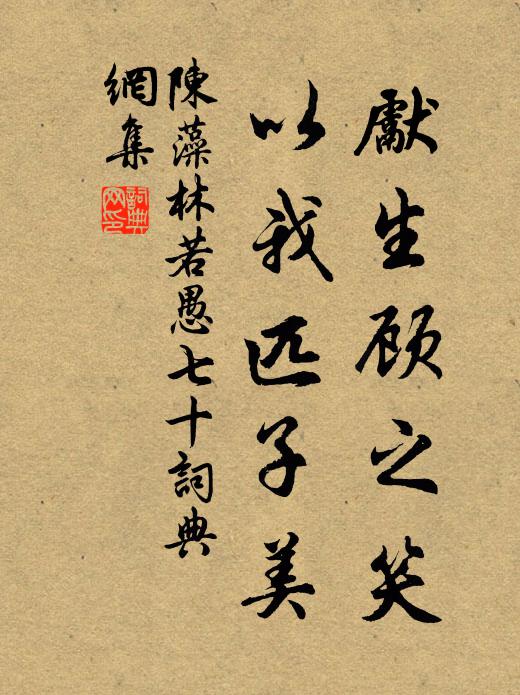 獻生顧之笑
以我匹子美
陳藻林若愚七十詞典
網集
詞典
网印